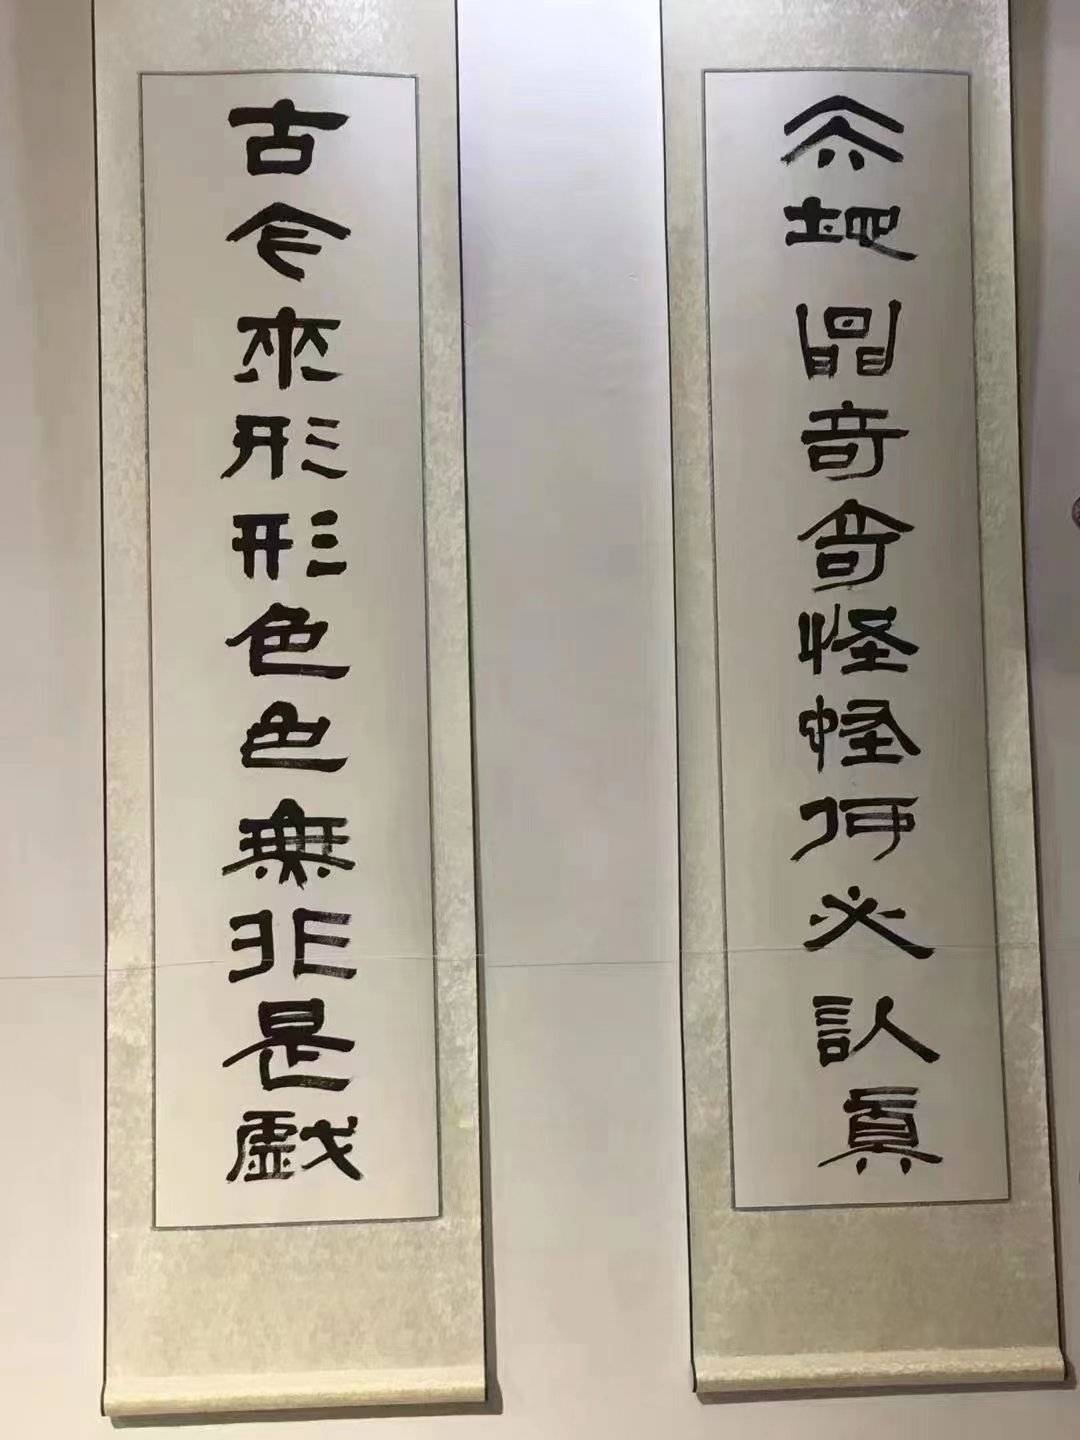 天地間奇奇怪怪何必認真
古今來形形色色無非是戯